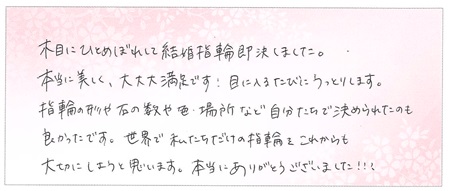 木目にひとめぼれして結婚指輪即決しました。
本当に美しく、大大大満足です！目に入るたびにうっとりします。
指輪の形や石の数や色・場所など自分たちで決められたのも
良かったです。世界で私たちだけの指輪をこれからも
大切にしようと思います。本当にありがとうございました!!!